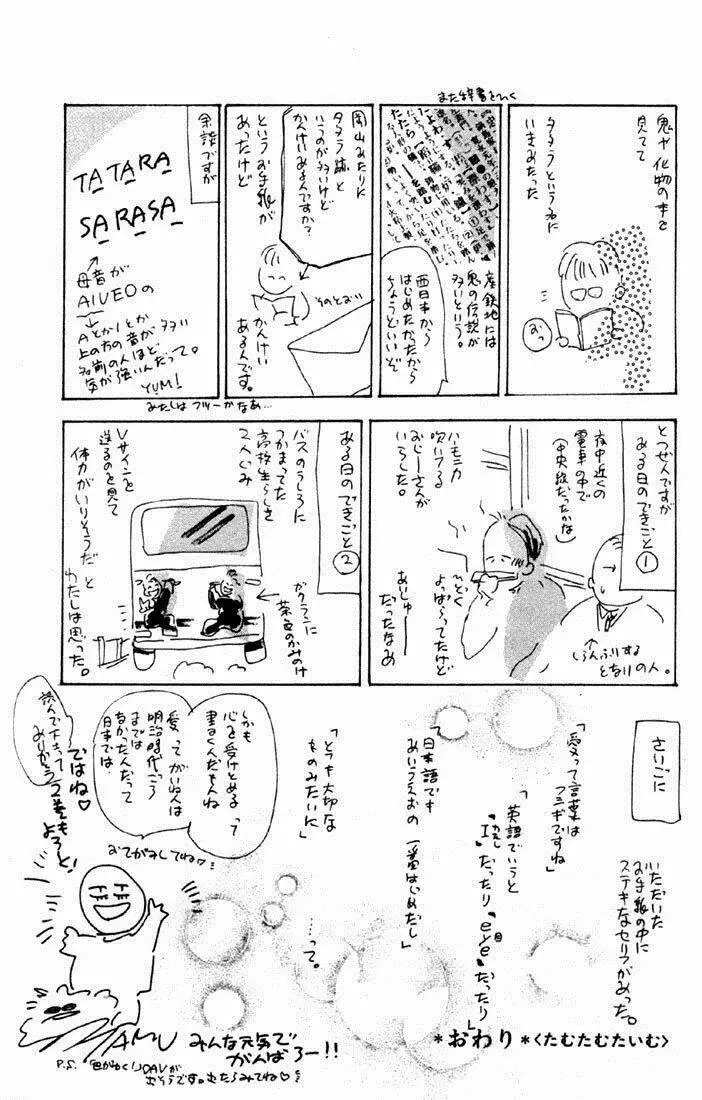 鬼や化物の本を
見てて
タタラという名に
いきあたった
おっ
また辞書をひく
産鉄地には
鬼の伝説が
多いという。
西日本から
はじめたかったから
ちょうどいいぞ
岡山あたりに
タタラ跡と
いうのが多いけど
かんけいあるんですか?
というお手紙が
あったけど
そのとおい
かんけい
あるんです。
余談ですが
TATARA
SARASA
母音が
AIUEOの
AとかIとか
上の方の音が多い
名前の人ほど
気が強いんだって。
YUMI
わたしはフツーかなあ…
とつぜんですが
ある日のできごと①
夜中近くの
電車の中で
(中央線だったかな)
ハーモニカ
吹いてる
おじーさんが
いらした。
けっこく
よっぱらってたけど
あいじゅー
だったなあ
しらんふりする
となりの人。
ある日のできごと②
バスのうしろに
つかまってた
高校生らしき
2人ぐみ
ガクランに
茶色のかみのけ
Vサインを
送るのを見て
体力がいりそうだ と
わたしは思った。
さいごに
いただいた
お手紙の中に
ステキなセリフがあった。
「愛って言葉は
フシギですね」
「英語でいうと
"I"だったり "eye"だったり」
私
目
「日本語でも
あいうえおの 一番はじめだし」
「とても大切な
ものみたいに」
……って。
しかも
心を受けとめる って
書くんだもんね
愛ってがいねんは
明治時代ごろ
までは
日本では
なかったんだって
おてがみしてね♡
読んで下さって
ありがとう
ではね♡
2巻もも
よろしく!
MAMU
みんな元気で
がんばろー!!
*おわり*<たむたむたいむ>